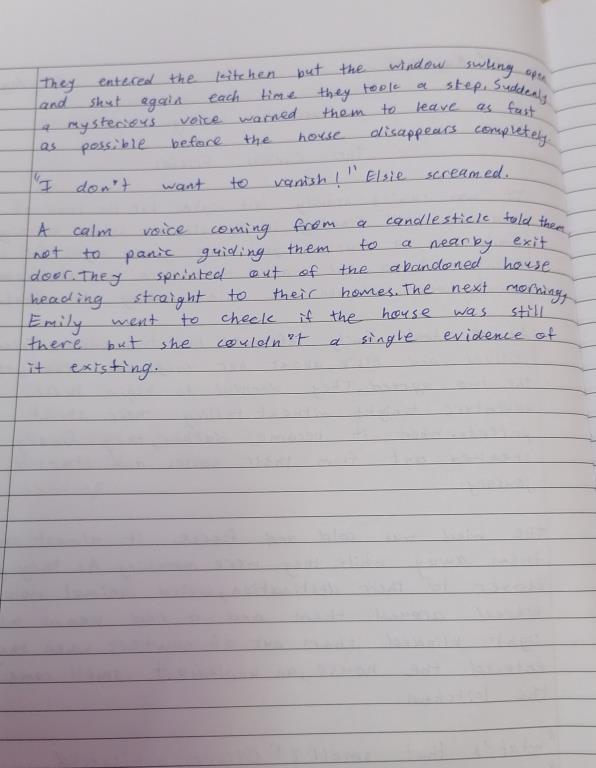 They entered the kitchen but the window swung open
and shut again each time they took a step. Suddenly
a mysterious voice warned them to leave as fast
as possible before the house disappears completely.
"I don't want to vanish!" Elsie screamed.
A calm voice coming from a candlestick told them
not to panic guiding them to a nearby exit
door. They sprinted out of the abandoned house
heading straight to their homes. The next morning,
Emily went to check if the house was still
there but she couldn't a single evidence of
it existing.